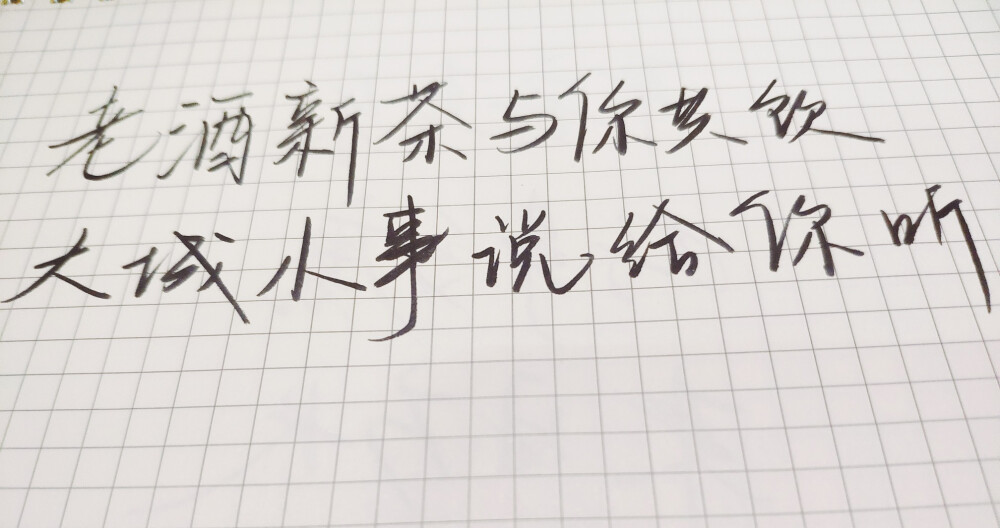 老酒新茶与你共饮
大城小事说给你听